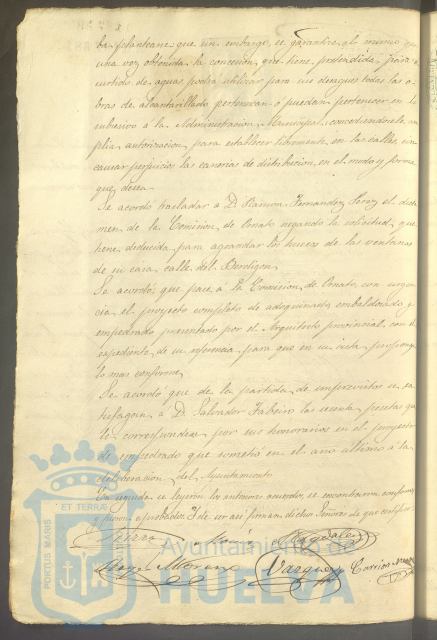 ba plantearse que sin embargo se garantice al mismo que
una vez obtenida la concesion que tiene pretendida para
surtido de aguas podra utilizar para sus desagues todas las o-
bras de alcantarillado pertenezcan ó puedan pertenecer en lo
subcesivo á la Administracion Municipal, concediendosele am-
plia autorizacion para establecer libremente en las calles sin
causar perjuicios las cañerias de distribucion, en el modo y forma
que desea.
Se acordo trasladar a D. Ramon Fernandez Perez el dicta-
men de la Comision de Ornato negando la solicitud que
tiene deducida para agrandar los huecos de las ventanas
de su casa calle del Berdigon.
Se acordó que pase á la Comision de Ornato, con urgen-
cia el proyecto completo de adoquinado, embaldosado y
empedrado presentado por el Arquitecto provincial, con el
expediente de su referencia para que en su vista proponga
lo mas conforme.
Se acordó que de la partida de imprevistos se sa-
tisfagan á D. Salvador las pesetas que
le corresponden por sus honorarios en el proyecto
de empedrado que sometió en el año ultimo á la
deliberacion del Ayuntamiento.
En seguida se leyeron los anteriores acuerdos, se encontraron conformes
y fueron aprobados. Y de ser asi firman dichos Señores de que certifico.
Garcia Magdalena
Moreno Vazquez
PORTUS MARIS
ET TERRAE
Ayuntamiento de
HUELVA